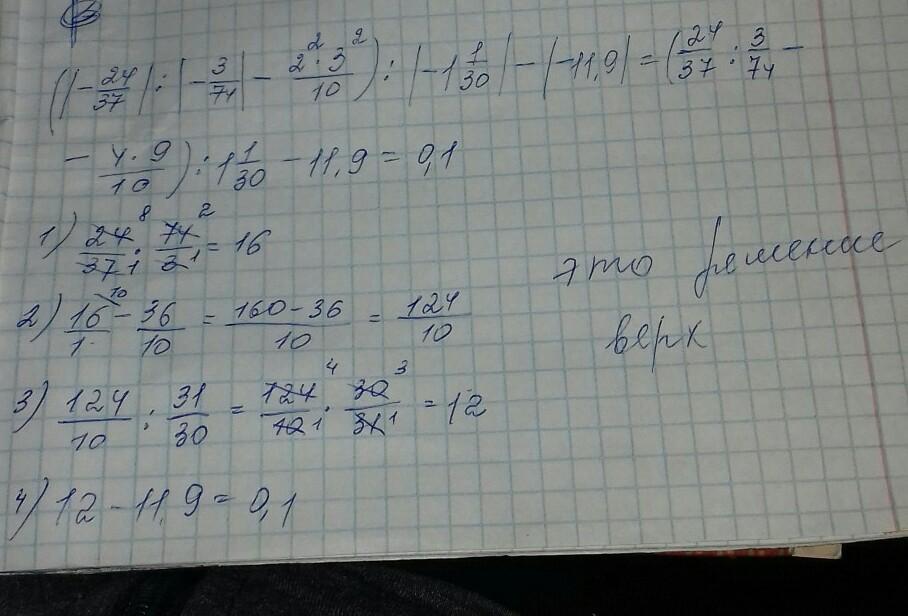 (|-24/37| : |-3/74| - 2²·3²/10) : |-1 1/30| - |-11,9| = (24/37 : 3/74 -
- 4·9/10) : 1 1/30 - 11,9 = 0,1
1) 24/37 · 74/3 = 16
2) 16/1 - 36/10 = 160-36/10 = 124/10
3) 124/10 : 31/30 = 124/10 · 30/31 = 12
4) 12 - 11,9 = 0,1
это решение
верх